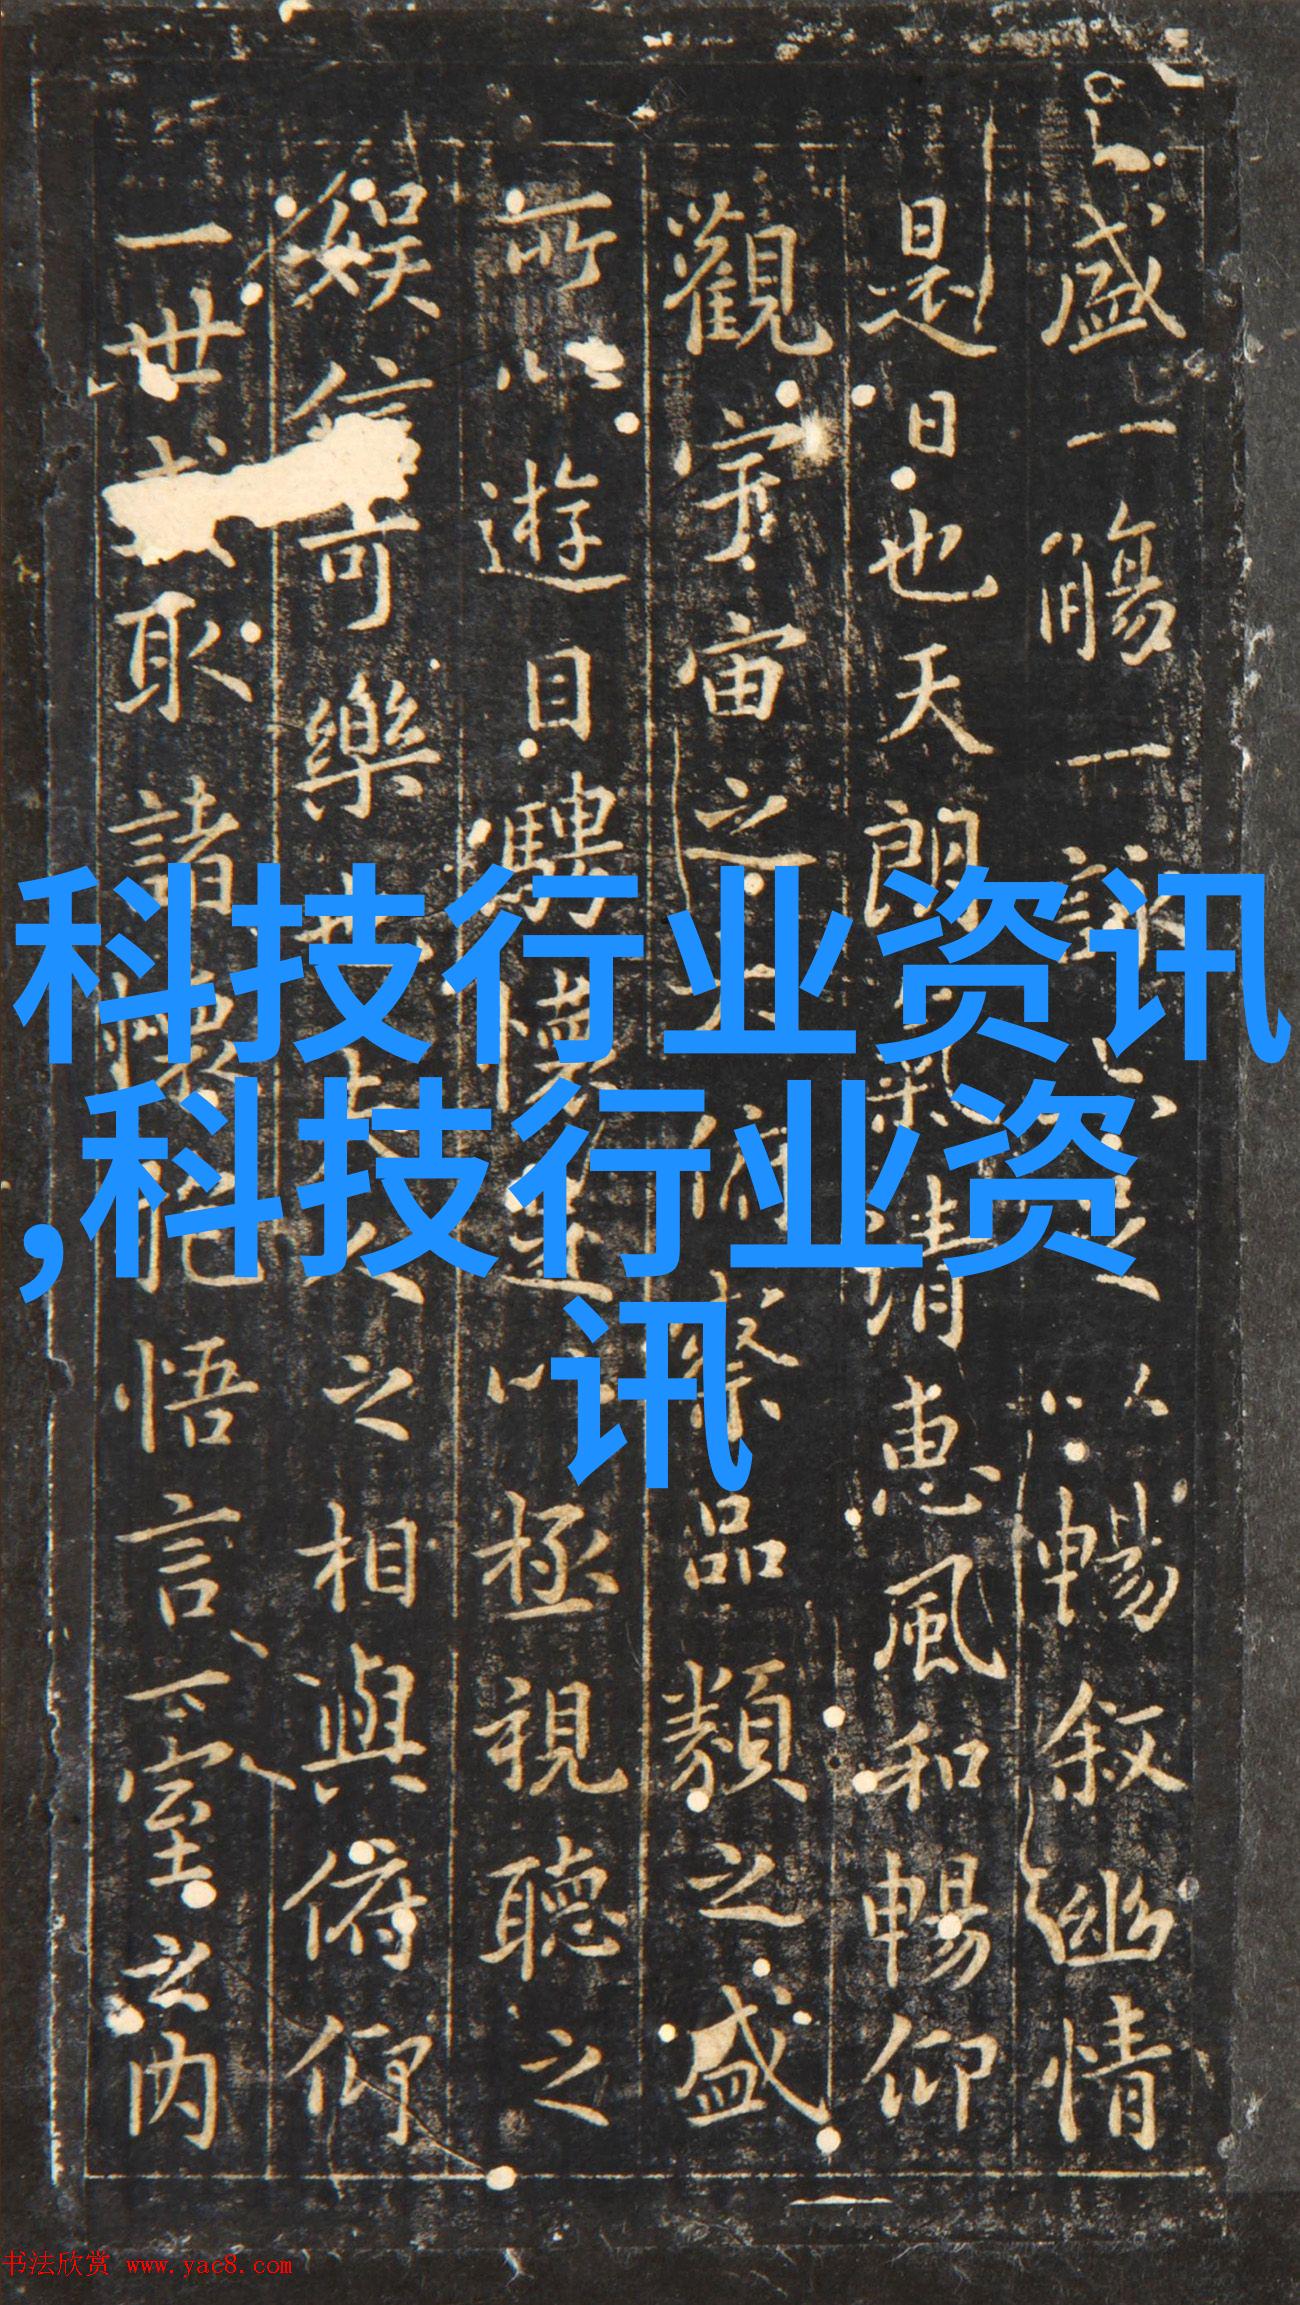 盛一觴一詠亦足以暢叙幽情
是日也天朗氣清惠風和暢仰
觀宇宙之大俯察品類之盛
所以遊目騁懷足以極視聽之
娛信可樂也夫人之相與俯仰
一世或取諸懷抱悟言一室之内
科技行业资讯
,科技行业资
讯
书法欣赏 www.yac8.com